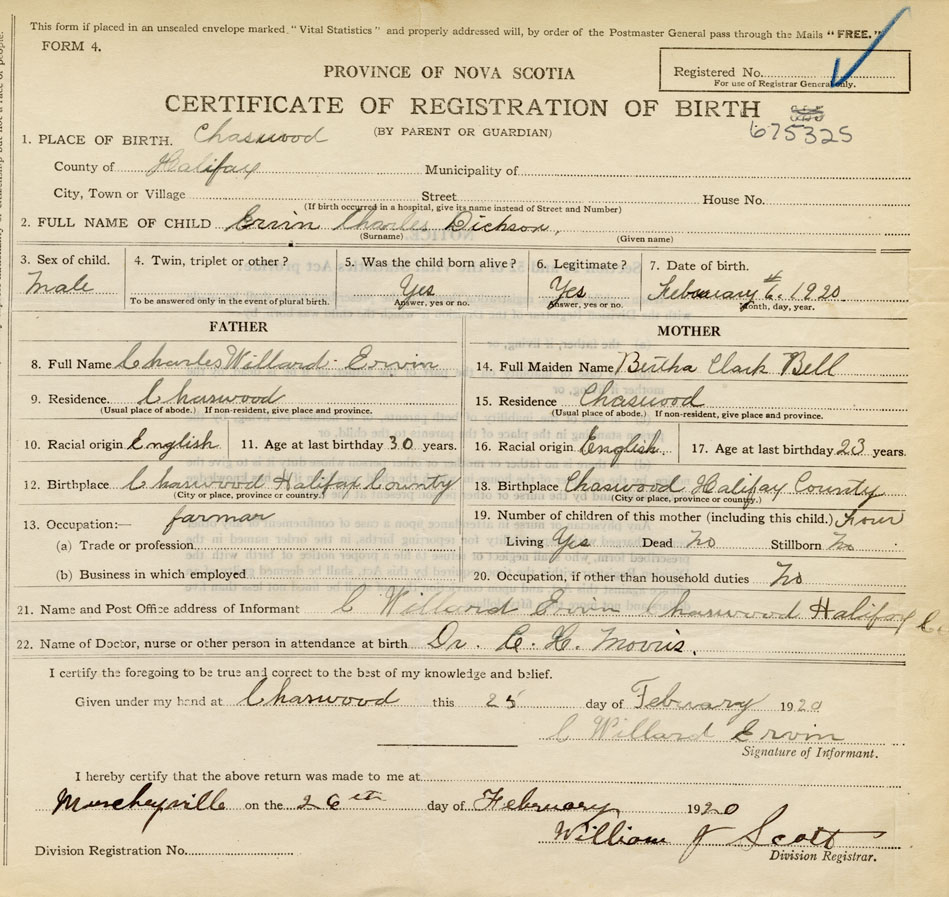 This form if placed in an unsealed envelope marked, "Vital Statistics" and properly addressed will, by order of the Postmaster General pass through the Mails "FREE."
FORM 4.
PROVINCE OF NOVA SCOTIA
Registered No.
For use of Registrar General only.
CERTIFICATE OF REGISTRATION OF BIRTH
(BY PARENT OR GUARDIAN)
675325
1. PLACE OF BIRTH. Chaswood
County of Halifax Municipality of
City, Town or Village Street House No.
(If birth occurred in a hospital, give its name instead of Street and Number)
2. FULL NAME OF CHILD Ervin Charles Dickson,
(Surname) (Given name)
3. Sex of child. 4. Twin, triplet or other? 5. Was the child born alive? 6. Legitimate? 7. Date of birth.
Male Yes Yes February 6. 1920
To be answered only in the event of plural birth. Answer, yes or no. Answer, yes or no. Month, day, year.
FATHER MOTHER
8. Full Name Charles Willard Ervin 14. Full Maiden Name Birtha Clark Bell
9. Residence. Chaswood 15. Residence Chaswood
(Usual place of abode.) If non-resident, give place and province. (Usual place of abode.) If non-resident, give place and province.
10. Racial origin English 11. Age at last birthday 30 years. 16. Racial origin English 17. Age at last birthday 23 years.
12. Birthplace Chaswood Halifax County 18. Birthplace Chaswood Halifax County
(City or place, province or country.) (City or place, province or country.)
13. Occupation:— farmar 19. Number of children of this mother (including this child.) Four
(a) Trade or profession Living Yes Dead No Stillborn No
(b) Business in which employed 20. Occupation, if other than household duties No
21. Name and Post Office address of Informant C Willard Ervin Chaswood Halifax C.
22. Name of Doctor, nurse or other person in attendance at birth Dr. C. H. Morris.
I certify the foregoing to be true and correct to the best of my knowledge and belief.
Given under my hand at Chaswood this 25 day of February 1920
C Willard Ervin
Signature of Informant.
I hereby certify that the above return was made to me at
on the 26th day of February 1920
William J Scott
Division Registrar.
Division Registration No.